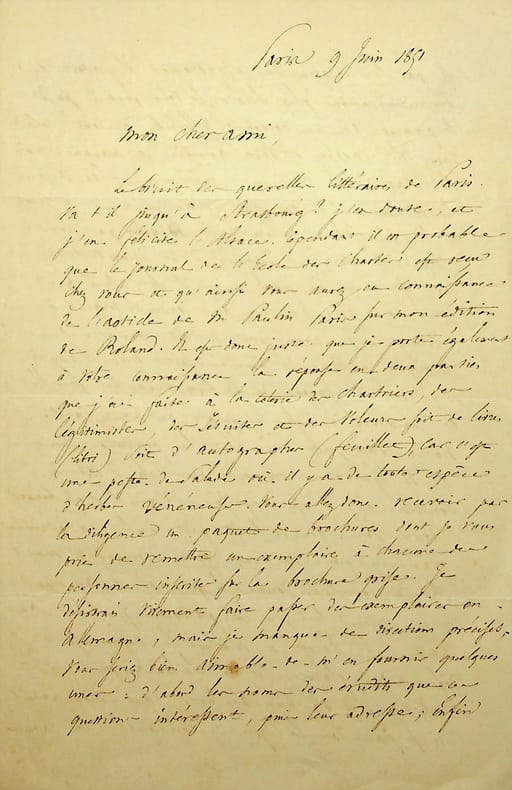 Paris 9 Juin 1851
mon cher ami,
Le bruit des querelles littéraires de Paris
va t il jusqu'à Strasbourg? j'en doute, et
j'en félicite l'Alsace. Cependant il est probable
que le journal de l'Ecole des Chartes est recu
chez vous et qu'ainsi vous aurez eu connaissance
de l'article de Mr Paulin Paris sur mon édition
de Roland. Il est donc juste que je porte également
à votre connaissance la réponse en deux parties
que j'ai faite à la coterie des chartriers, des
légitimistes, des Jésuites et des Voleurs soit de livres
(Libri) soit d'autographes (feuillet), car c'est
une peste de salade où il y a de toute espèce
d'herbes vénéneuses. Vous allez donc recevoir par
la diligence un paquet de brochures dont je vous
prie de remettre un exemplaire à chacune des
personnes inscrites sur la brochure grise. Je
désirerais vivement faire passer des exemplaires en
Allemagne, mais je manque de directions précises,
Vous seriez bien aimable de m'en fournir quelques
unes : d'abord les noms des érudits que ces
questions intéressent, puis leur adresse; enfin